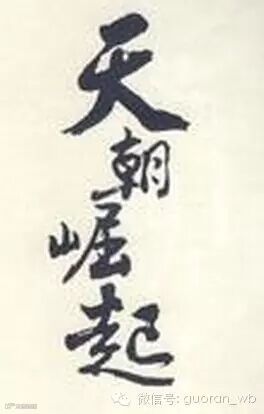 天朝崛起
微信号: guoran_wb